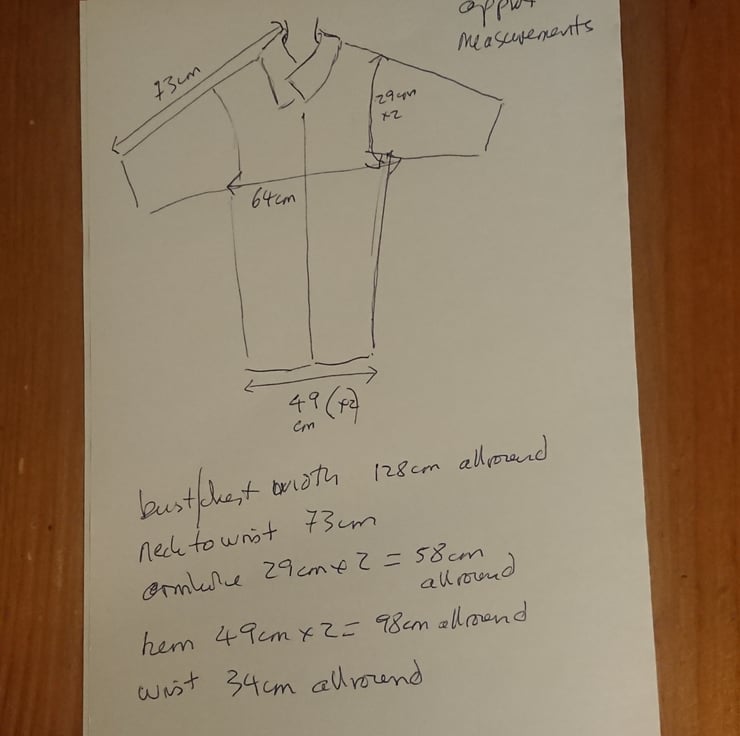 measurements
73cm
29cm
x2
64cm
49 (x2)
cm
bust/chest width 128cm allround
neck to wrist 73cm
armhole 29cm x 2 = 58cm
allround
hem 49cm x 2 = 98cm allround
wrist 34cm allround